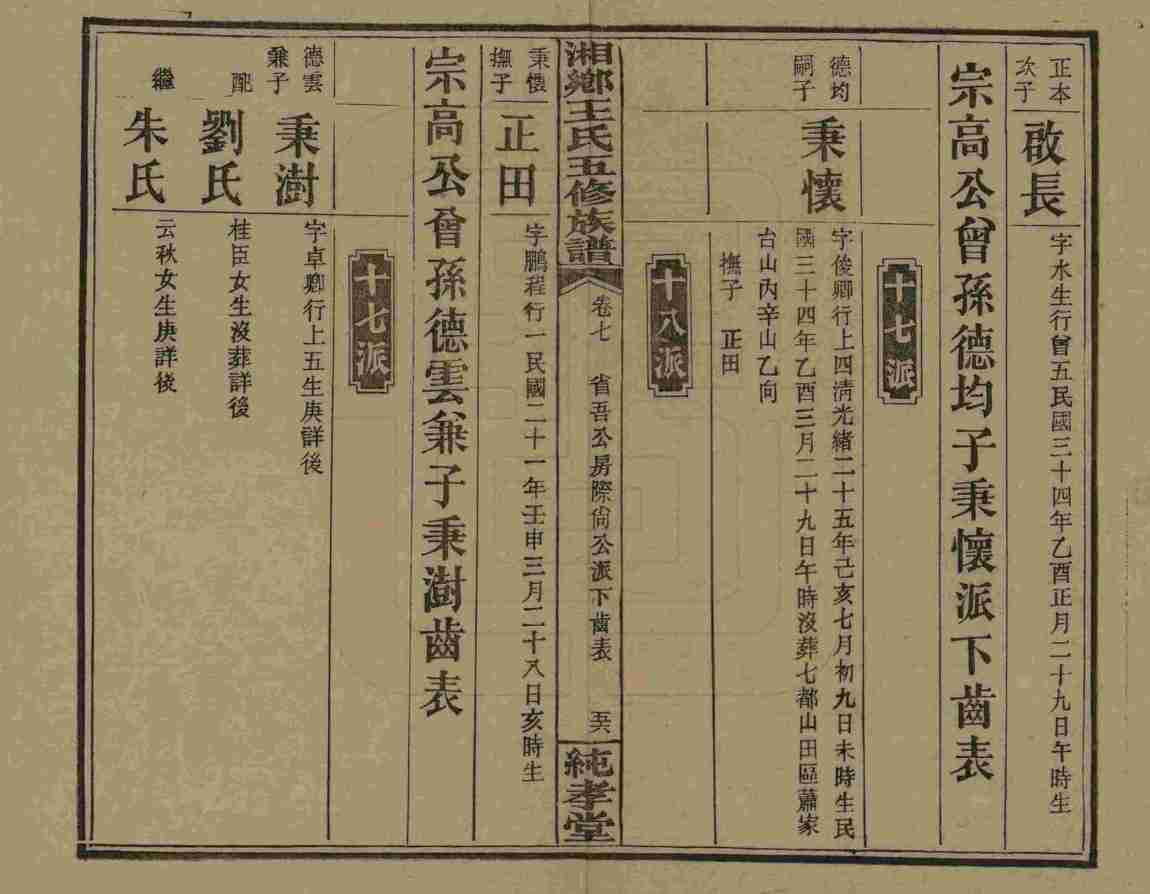 正本
次子
啟長
字水生行曾五民國三十四年乙酉正月二十九日午時生
宗高公曾孫德均子秉懷派下齒表
十七派
德均
嗣子
秉懷
字俊卿行上四清光緒二十五年己亥七月初九日未時生民
國三十四年乙酉三月二十九日午時沒葬七都山田區蕭家
台山丙辛山乙向
撫子 正田
十八派
湘鄉王氏五修族譜
卷七 省吾公房際尚公派下齒表
純孝堂
秉懷
撫子
正田
字鵬程行一民國二十一年壬申三月二十八日亥時生
宗高公曾孫德雲兼子秉澍齒表
十七派
德雲
兼子
秉澍
字卓卿行上五生庚詳後
配
劉氏
桂臣女生沒葬詳後
繼
朱氏
云秋女生庚詳後